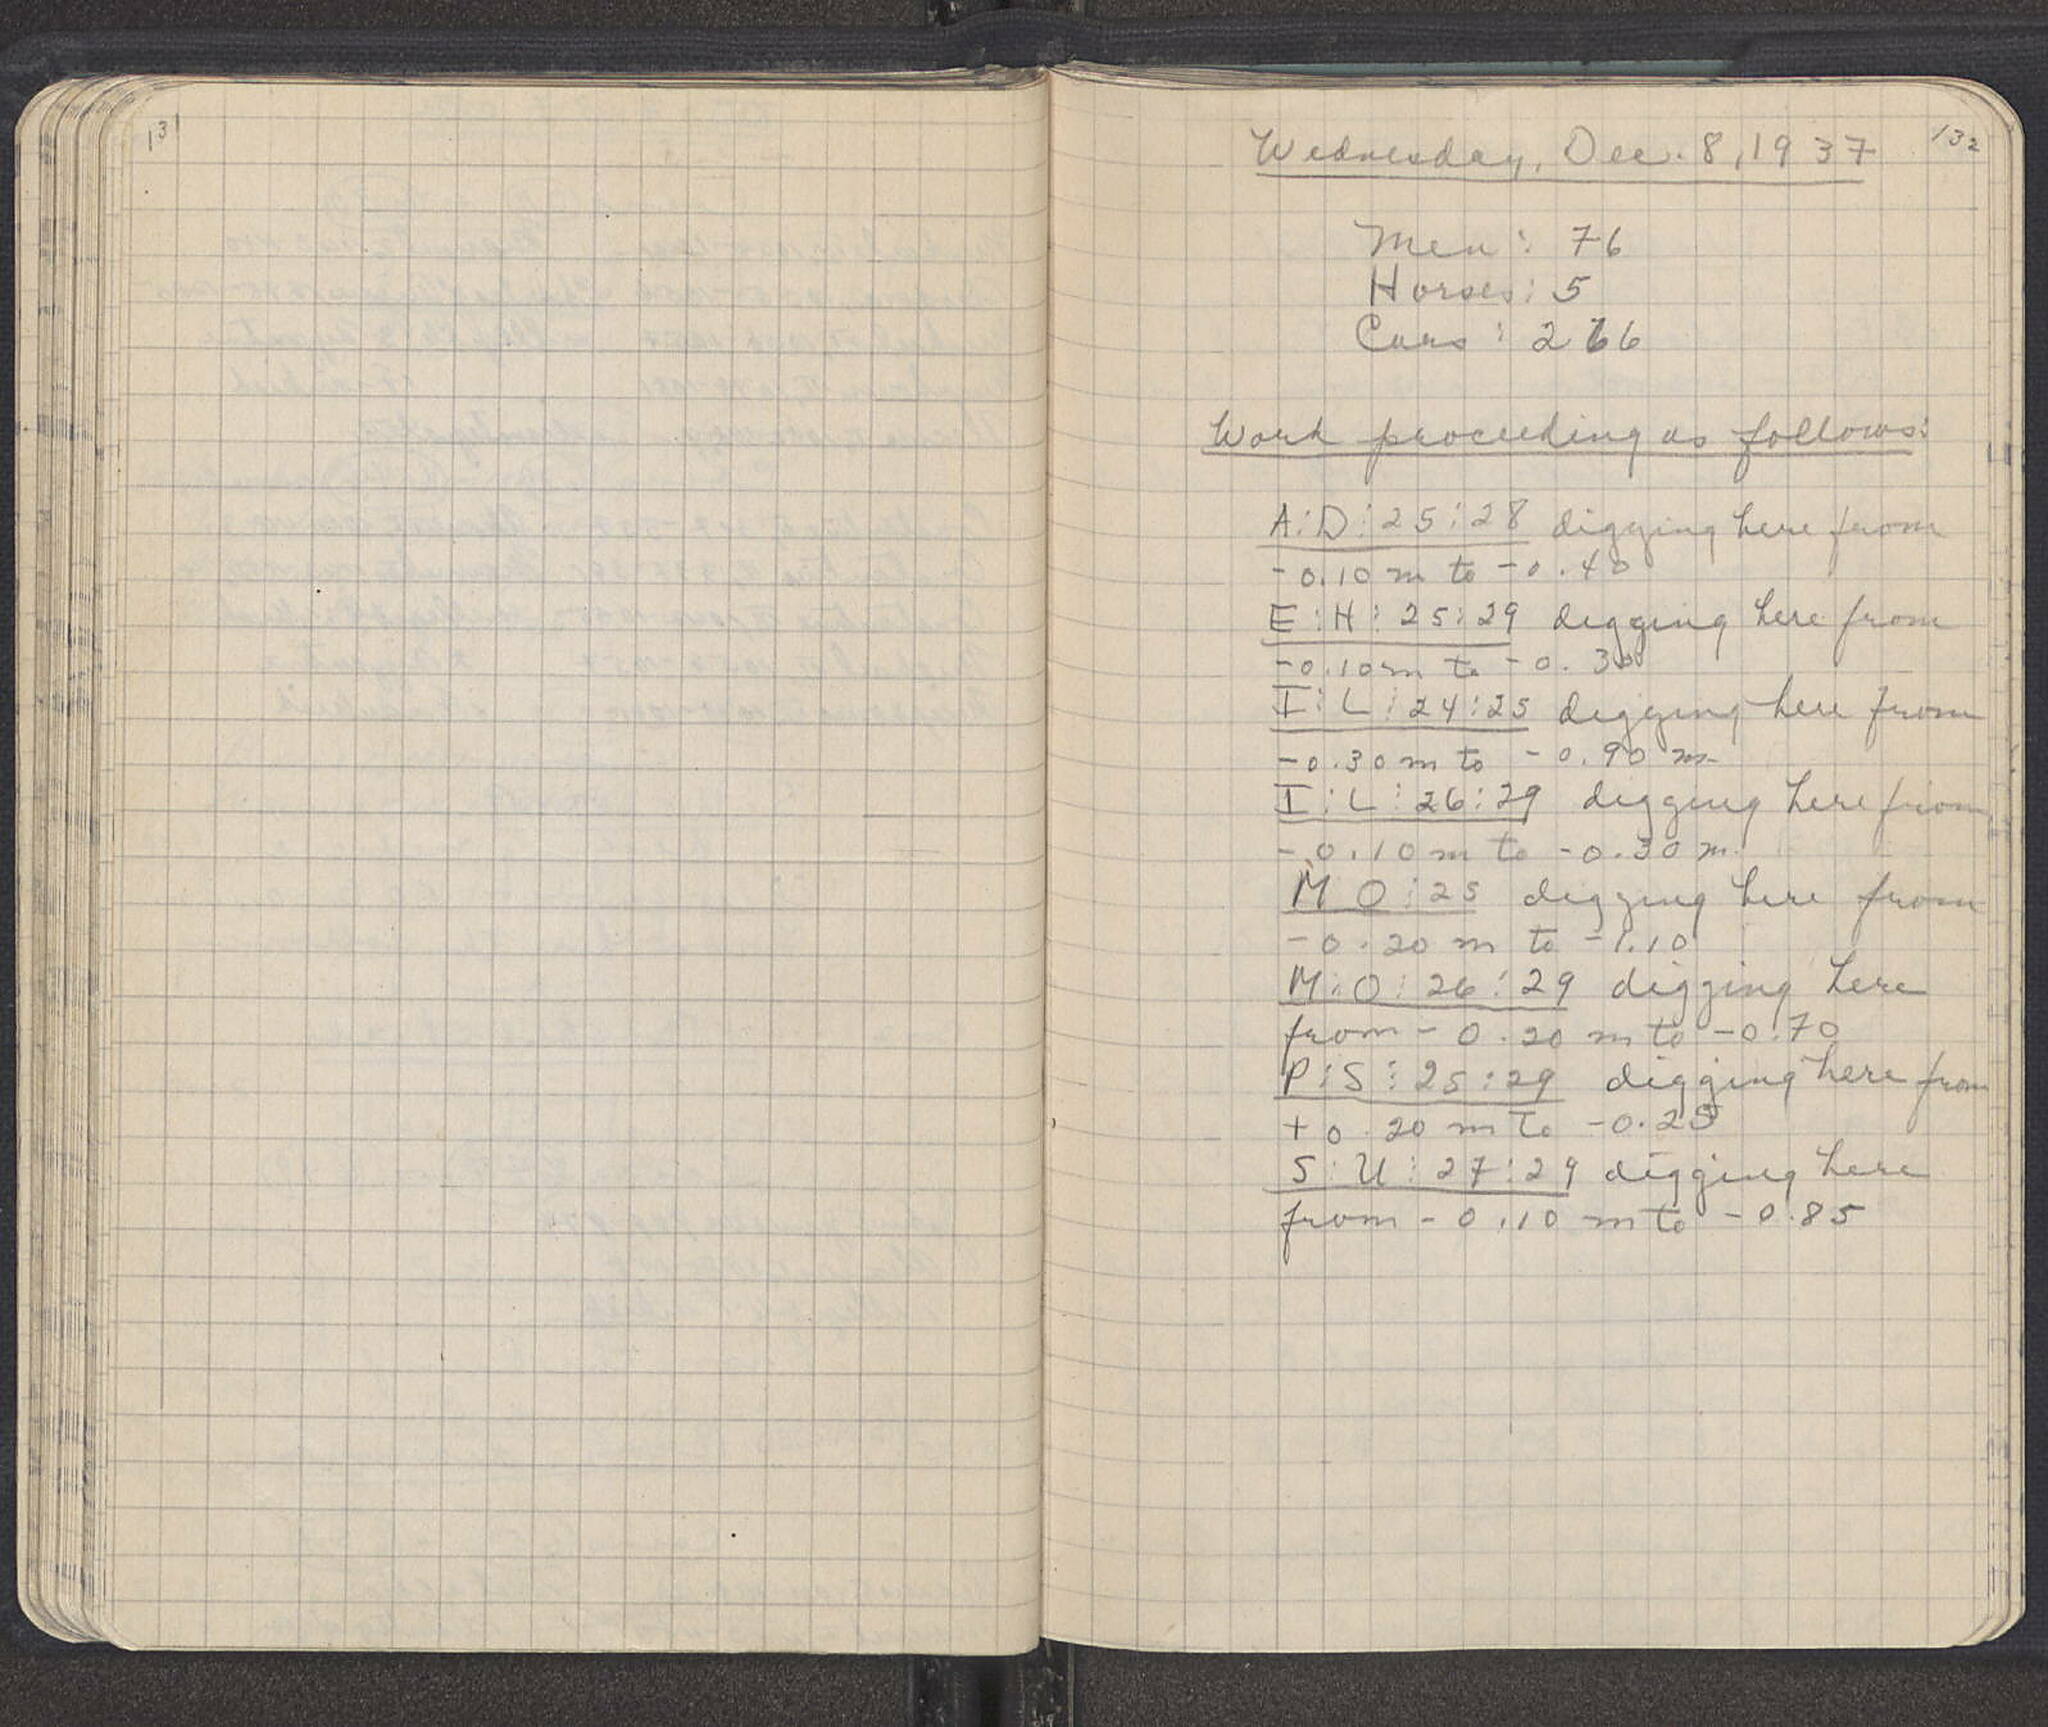 131
132
Wednesday, Dec. 8, 1937
Men: 76
Horses: 5
Cars: 266
Work proceeding as follows:
A:D:25:28 digging here from
-0.10 m to -0.40
E:H:25:29 digging here from
-0.10 m to -0.30
I:L:24:25 digging here from
-0.30 m to -0.90 m
I:L:26:29 digging here from
-0.10 m to -0.30 m.
M O:25 digging here from
-0.20 m to -1.10
M:O:26:29 digging here
from -0.20 m to -0.70
P:S:25:29 digging here from
+0.20 m to -0.25
S:U:27:29 digging here
from -0.10 m to -0.85